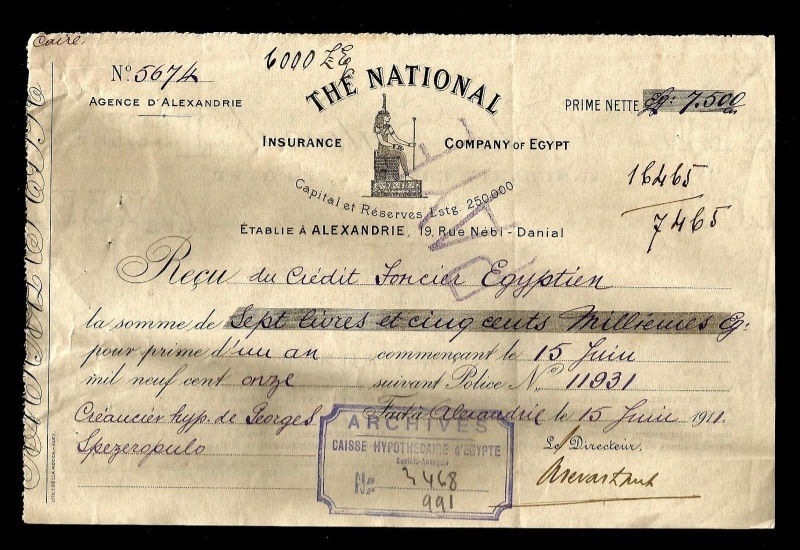 Caire.
6000 £Eg
Nº 5674
THE NATIONAL
AGENCE D'ALEXANDRIE
PRIME NETTE £Eg: 7.500
INSURANCE COMPANY OF EGYPT
16465
Capital et Réserves Lstg. 250,000
7465
ÉTABLIE À ALEXANDRIE, 19, Rue Nébi-Danial
Reçu du Crédit Foncier Egyptien
la somme de Sept livres et cinq cents Millièmes Eg:
pour prime d'un an commençant le 15 Juin
mil neuf cent onze suivant Police Nº 11931
Créancier hyp. de Georges Fait à Alexandrie le 15 Juin 1911.
Spezeropulo
Le Directeur,
ARCHIVES
CAISSE HYPOTHÉCAIRE D'EGYPTE
Société Anonyme
Nº 3468
991